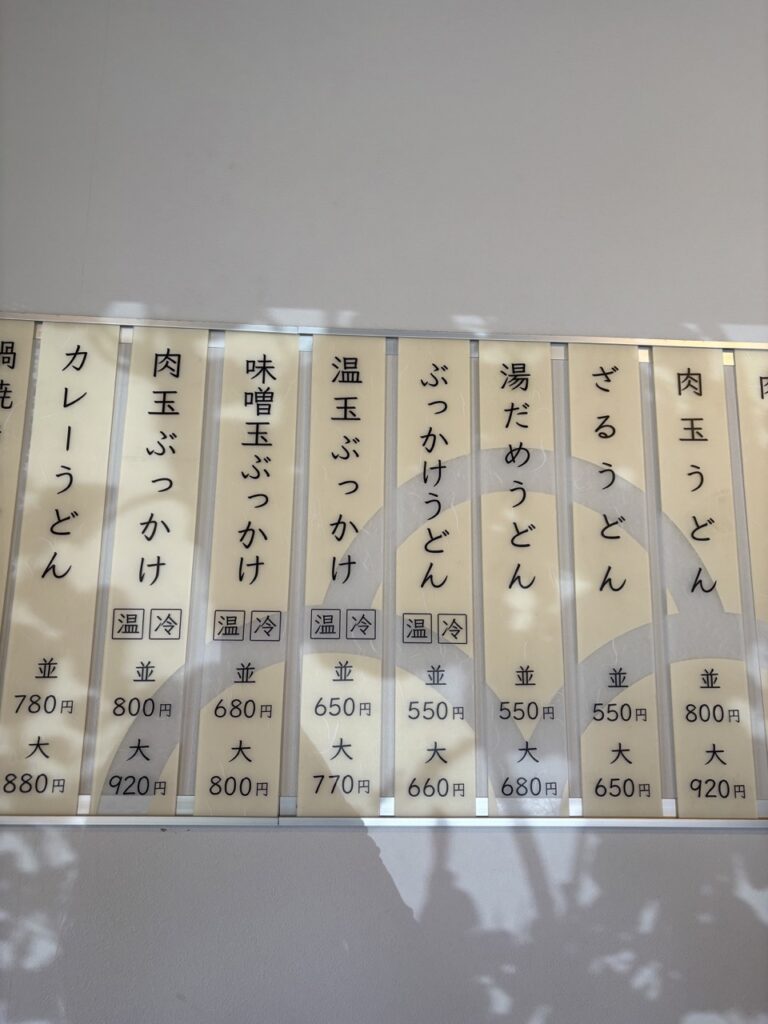 肉
肉玉うどん
並
800円
大
920円
ざるうどん
並
550円
大
650円
湯だめうどん
並
550円
大
680円
ぶっかけうどん
温 冷
並
550円
大
660円
温玉ぶっかけ
温 冷
並
650円
大
770円
味噌玉ぶっかけ
温 冷
並
680円
大
800円
肉玉ぶっかけ
温 冷
並
800円
大
920円
カレーうどん
並
780円
大
880円
鍋焼